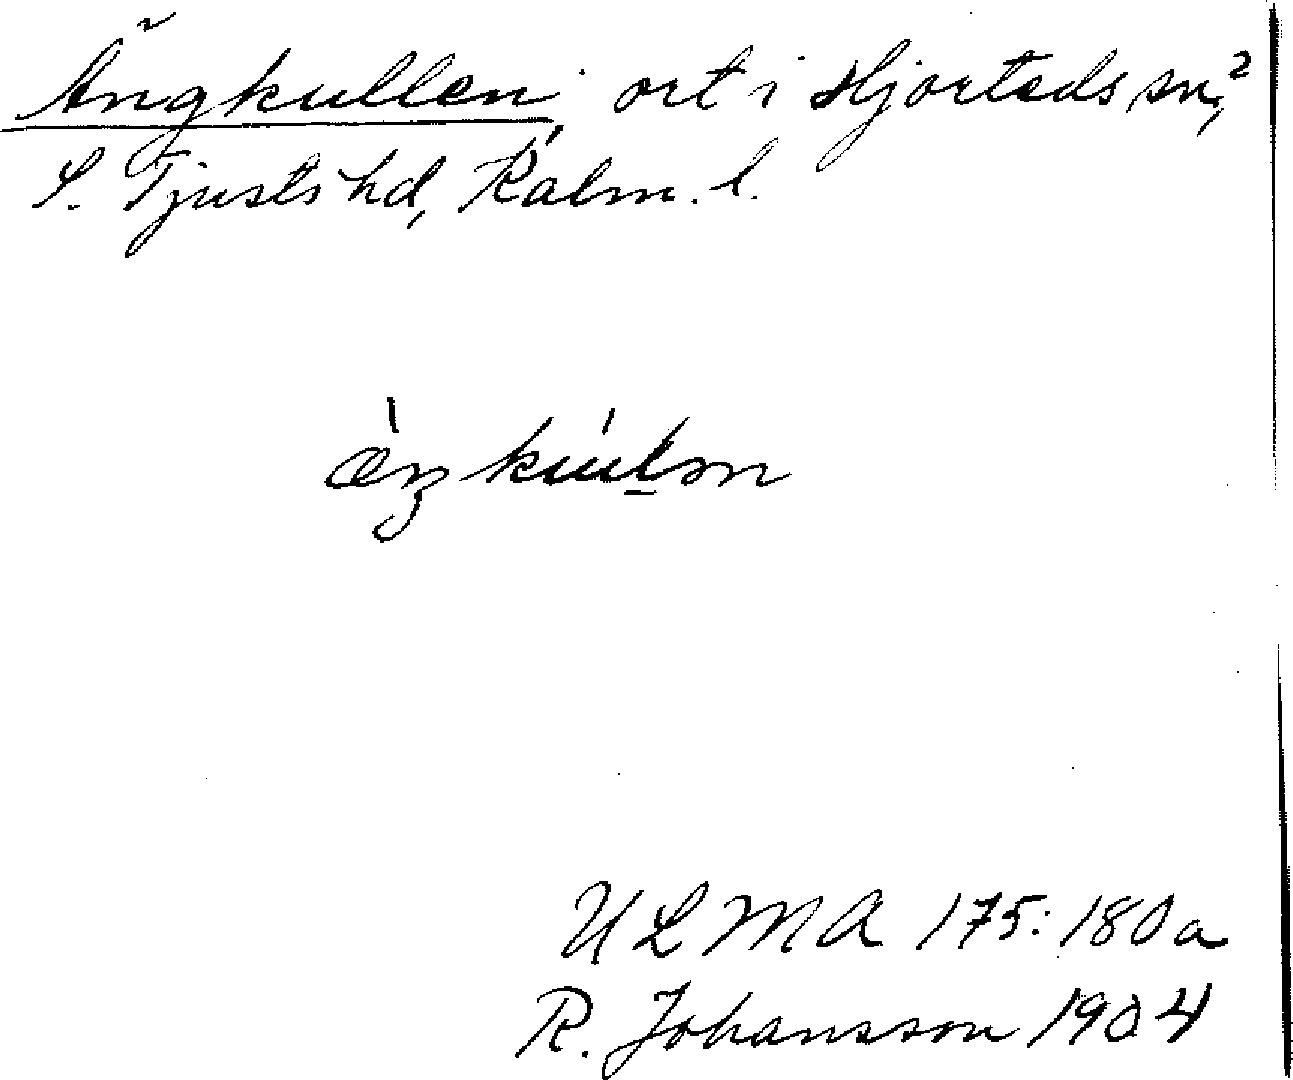 Ängkullen, ort i Hjorteds sn,?
S. Tjusts hd, Kalm. l.
ULMA 175:180a
R. Johansson 1904